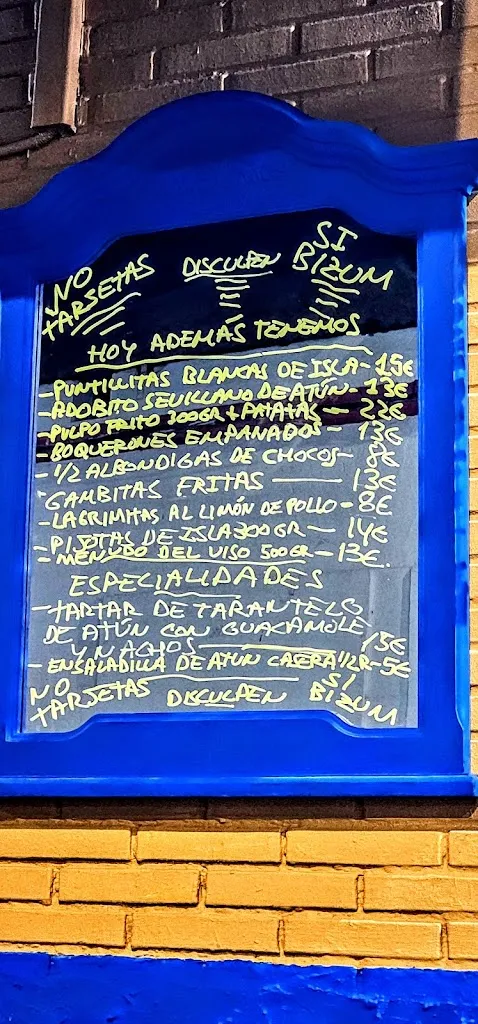 NO TARJETAS DISCULPEN SI BIZUM
HOY ADEMÁS TENEMOS
-PUNTILLITAS BLANCAS DE ISLA- 15€
-ADOBITO SEVILLANO DE ATÚN- 13€
-PULPO FRITO 300GR + PATATAS — 22€
-BOQUERONES EMPANADOS
-1/2 ALBONDIGAS DE CHOCOS-
GAMBITAS FRITAS — 13€
-LAGRIMITAS AL LIMÓN DE POLLO- 8€
-PIJOTAS DE ISLA 300GR — 14€
-MENUDO DEL VISO 500GR — 13€.
ESPECIALIDADES
-TARTAR DE TARANTELO
DE ATÚN CON GUACAMOLE
Y NACHOS — 15€
-ENSALADILLA DE ATUN CASERA 1/2R-5€
NO TARJETAS DISCULPEN SI BIZUM